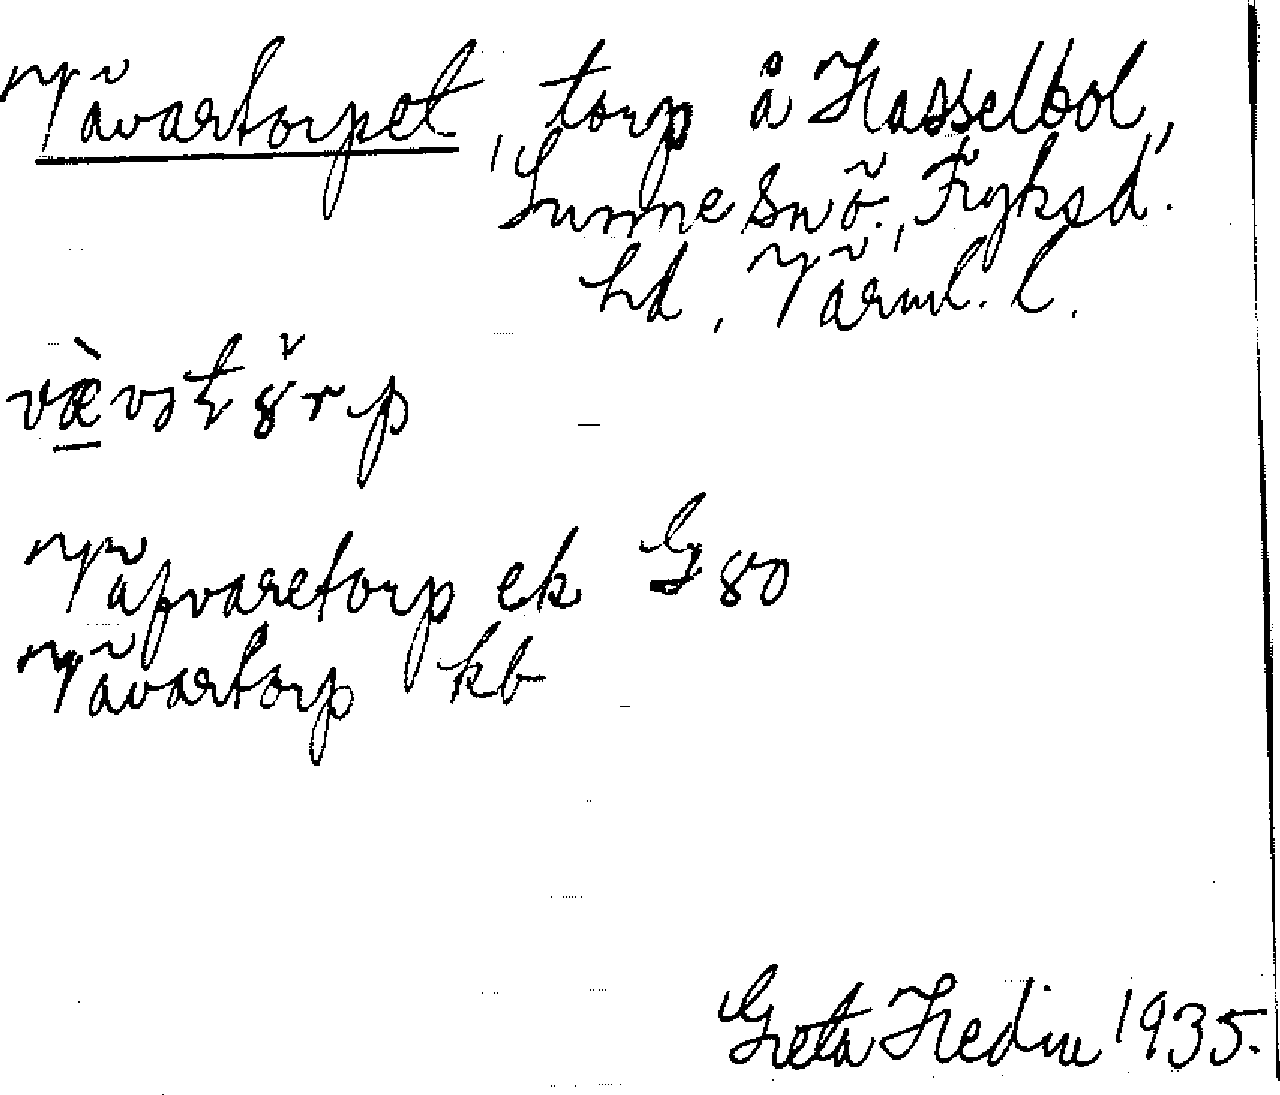 Vävartorpet, torp å Hasselbol,
Sunne sn ö., Fryksd.
hd, Värml. l.
Väfvaretorp ek G 80
Vävartorp kb
Greta Hedin 1935.